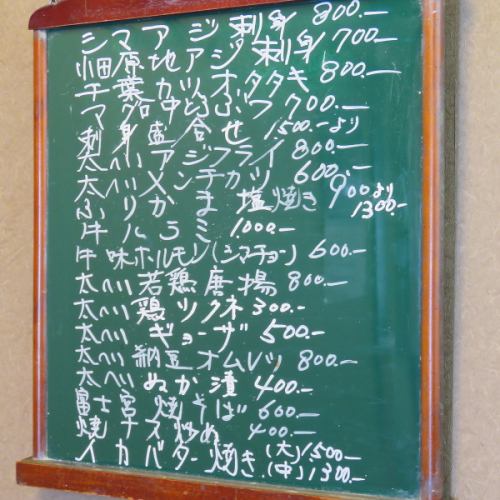 シマアジ刺身 800.-
佃原地アジ刺身 700-
千葉カツオタタキ 800.-
マグロ中とろブツ 700.-
刺身盛合せ 1,500.-より
太ハアジフライ 800.-
太ハメンチカツ 600.-
ぶりかま塩焼き 900より 1300.-
牛ハラミ 1000.-
牛味ホルモン(シマチョー) 600.-
太ハ若鶏唐揚 800.-
太ハ鶏ツクネ 300.-
太ハギョーザ 500.-
太ハ納豆オムレツ 800.-
太ハぬか漬 400.-
富士宮焼そば 600.-
焼ナス炒め 400.-
イカバター焼き (大)1500- (中)1300.-